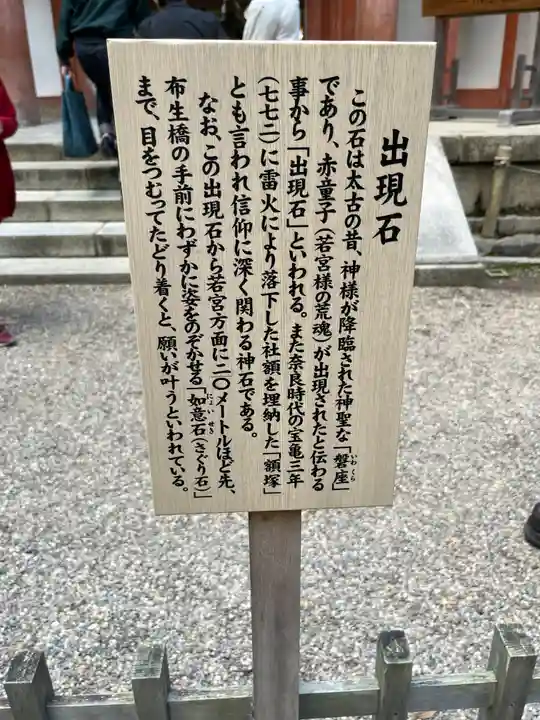 出現石
この石は太古の昔、神様が降臨された神聖な「磐座」
いわくら
であり、赤童子(若宮様の荒魂)が出現されたと伝わる
事から「出現石」といわれる。また奈良時代の宝亀三年
(七七二)に雷火により落下した社額を埋納した「額塚」
とも言われ信仰に深く関わる神石である。
なお、この出現石から若宮方面に二〇メートルほど先、
布生橋の手前にわずかに姿をのぞかせる「如意石(さぐり石)」
にょいせき
まで、目をつむってたどり着くと、願いが叶うといわれている。